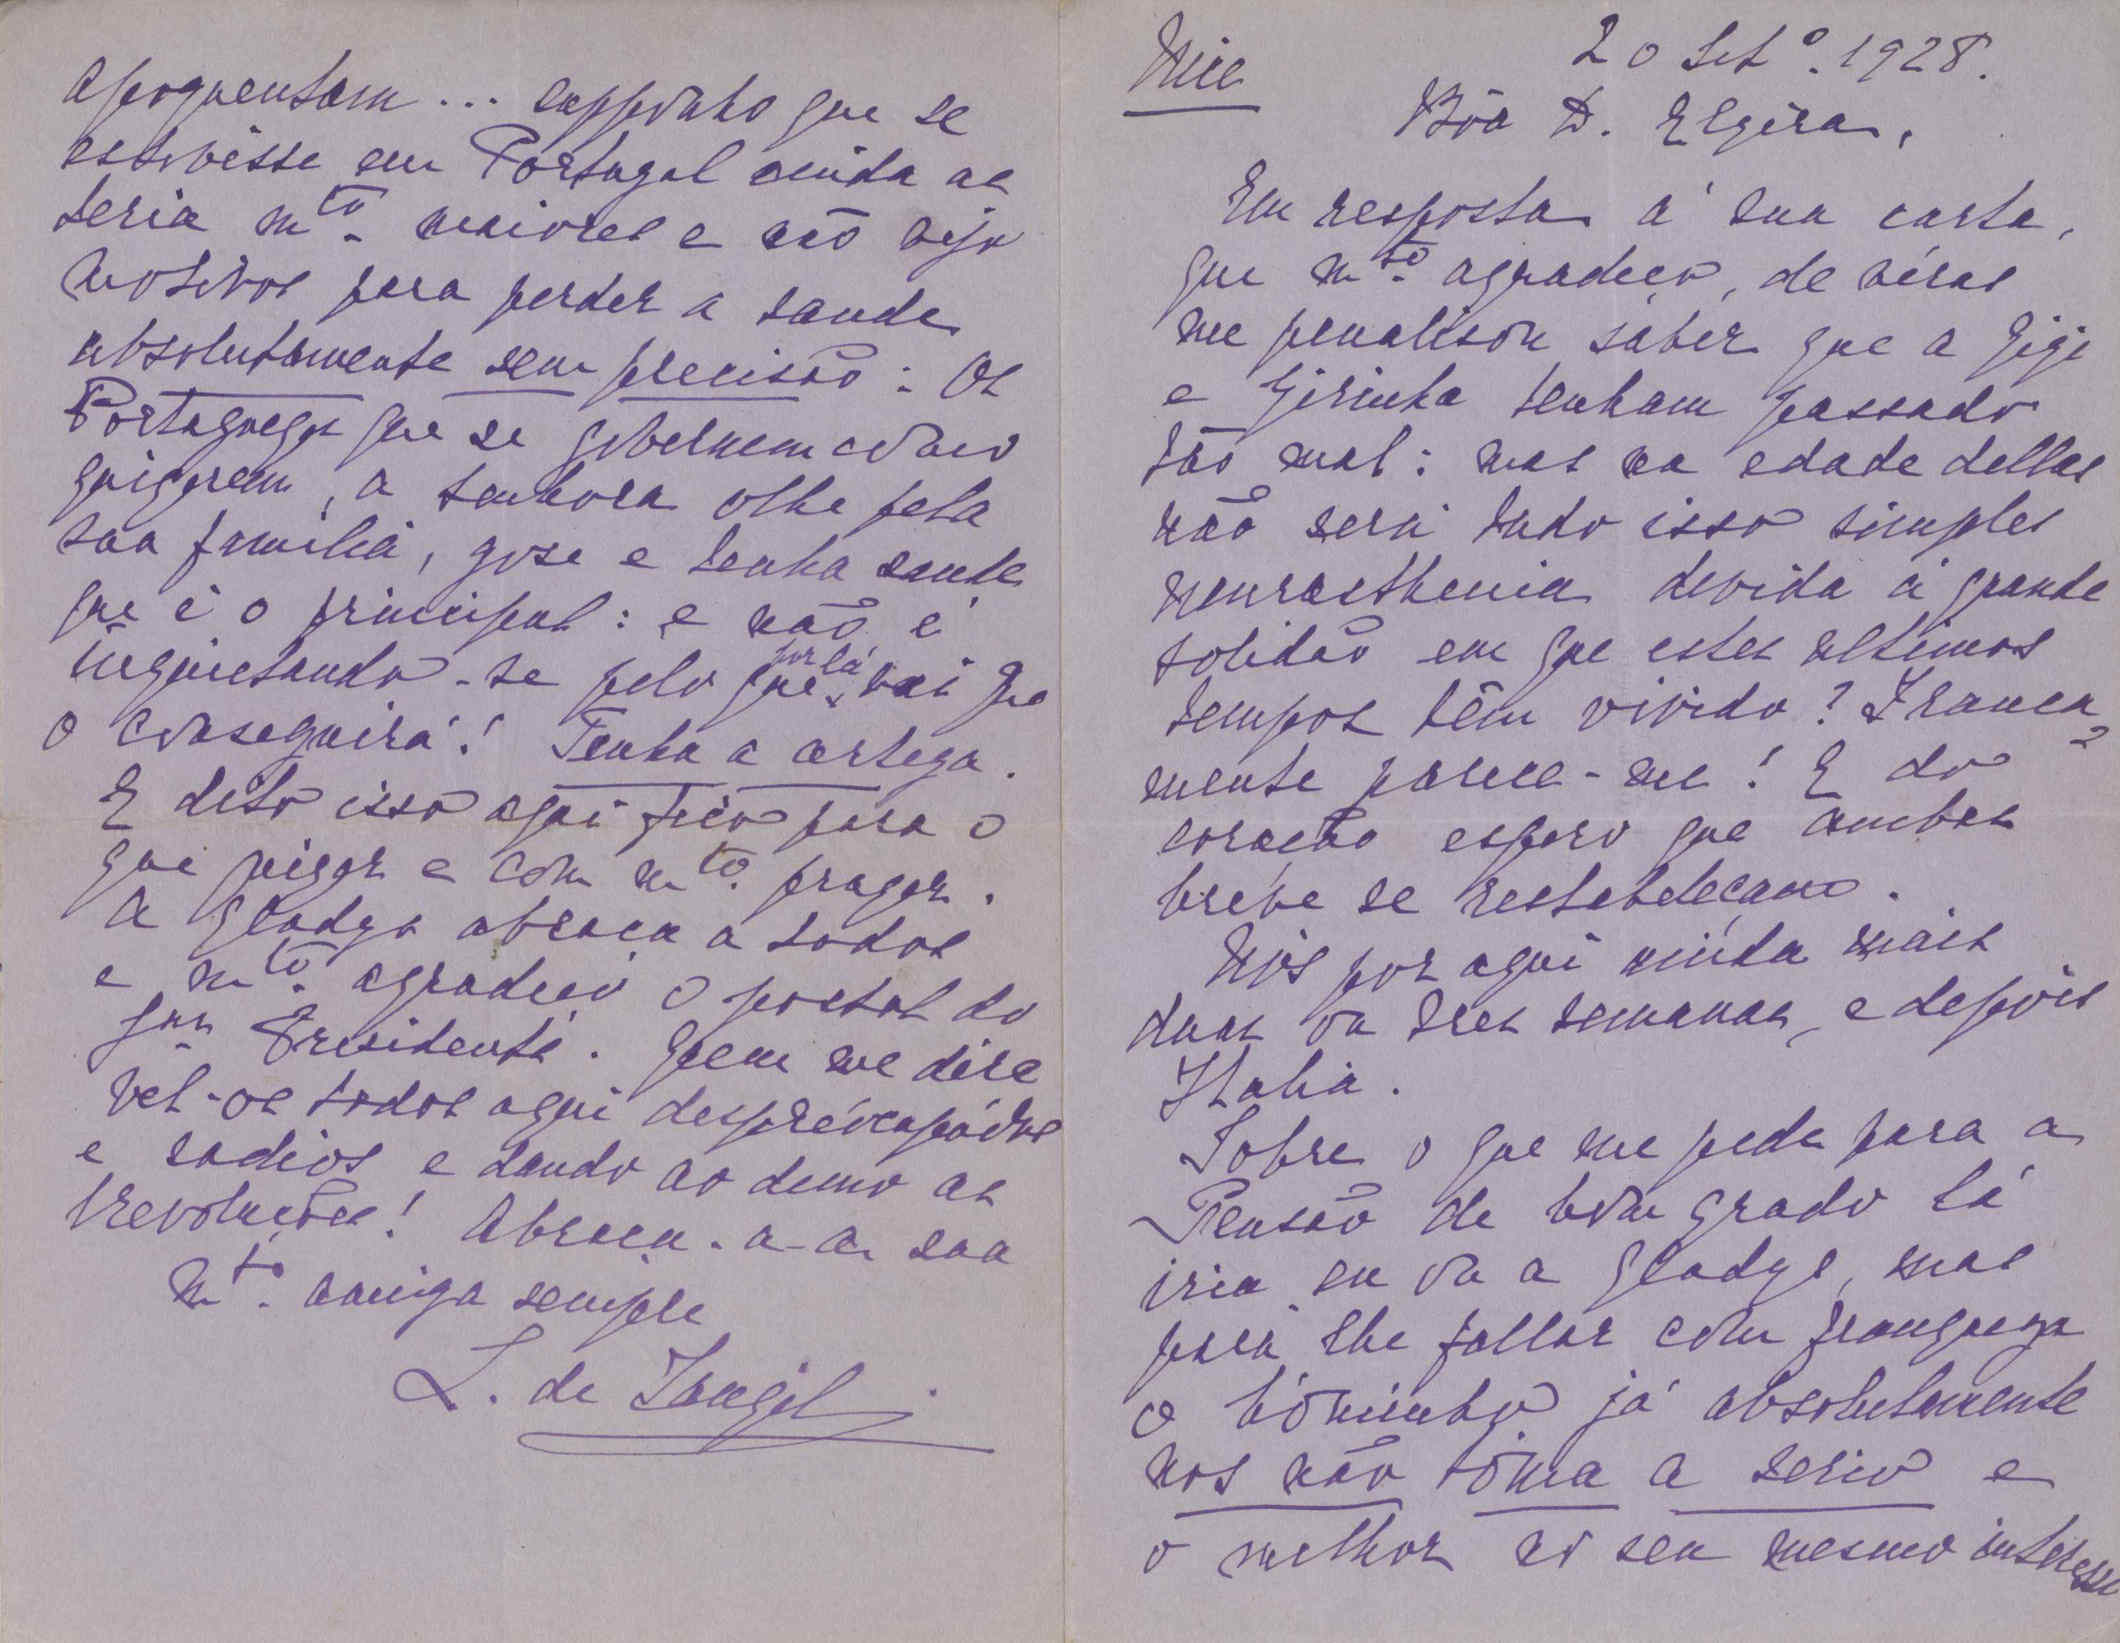 Nice
20 Set.º 1928.
Bôa D. Elzira,
Em resposta á sua carta,
que m.to agradeço, de véras
me penalisou saber que a Gigi
e Girinha tenham passado
tão mal: mas na edade dellas
não será tudo isso simples
neurasthenia devida á grande
solidão em que estes ultimos
tempos têm vivido? Franca-
mente parece-me! E do
coração espero que ambas
bréve se restabeleçam.
Nós por aqui ainda mais
duas ou tres semanas, e depois
Italia.
Sobre o que me pede para a
Pensão de bom grado lá
iria eu ou a Gladys, mas
para lhe fallar com franqueza
o já absolutamente
nos não tóma a serio e
o melhor no seu mesmo interesse
apoquentam... supponho que se
estivésse em Portugal ainda as
teria m.to maiores e não vejo
motivos para perder a saude
absolutamente sem precisão: Os
Portuguezes que se governem como
quizerem, a senhora olhe pela
sua familia, gose e tenha saude
que é o principal: e não é
inquietando-se pelo que por lá vai que
o conseguirá! Tenha a certeza.
E dito isso aqui fico para o
que quizer e com m.to prazer.
A Gladys abraça a todos
e m.to agradeço o postal do
Presidente. Quem me déra
vel-os todos aqui despréocupádos
e sadios e dando ao demo as
Revoluções! Abraça-a a sua
m.to amiga sempre
L. de